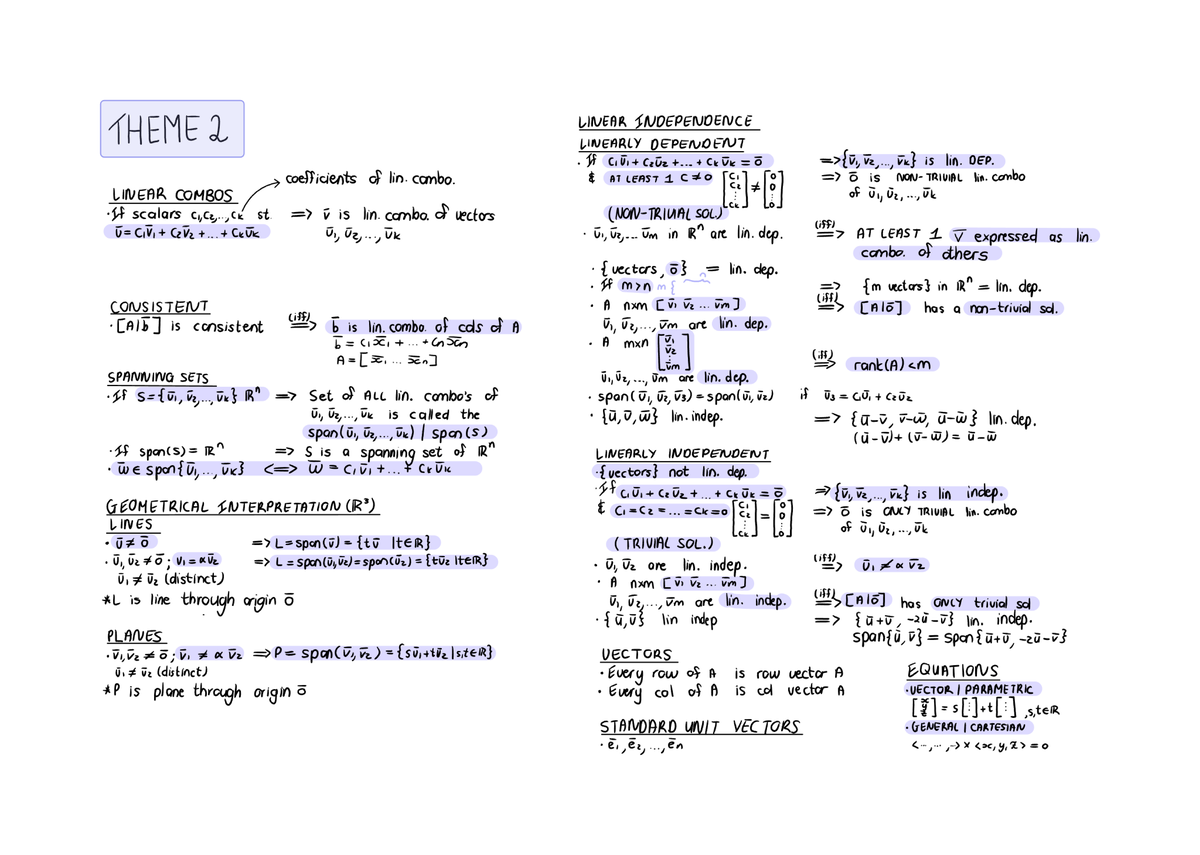 THEME 2
coefficients of lin. combo.
LINEAR COMBOS
· If scalars c₁,c₂,..,cₖ st => v̅ is lin. combo. of vectors
v̅ = c₁v̅₁ + c₂v̅₂ + ... + cₖv̅ₖ v̅₁, v̅₂,..., v̅ₖ
CONSISTENT
· [A|b̅] is consistent (iff) => b̅ is lin. combo. of cols of A
b̅ = c₁x̅₁ + ... + cₙx̅ₙ
A = [x̅₁ ... x̅ₙ]
SPANNING SETS
· If S={v̅₁, v̅₂,..., v̅ₖ} ℝⁿ => Set of ALL lin. combo's of
v̅₁, v̅₂,..., v̅ₖ is called the
span(v̅₁, v̅₂,..., v̅ₖ) | span(S)
· If span(s) = ℝⁿ => S is a spanning set of ℝⁿ
· w̅ ∈ span{v̅₁,..., v̅ₖ} <=> w̅ = c₁v̅₁ + ... + cₖv̅ₖ
GEOMETRICAL INTERPRETATION (ℝ³)
LINES
· v̅ ≠ o̅ => L = span(v̅) = {tv̅ | t∈ℝ}
· v̅₁, v̅₂ ≠ o̅ ; v̅₁ = αv̅₂ => L = span(v̅₁,v̅₂) = span(v̅₂) = {tv̅₂ | t∈ℝ}
v̅₁ ≠ v̅₂ (distinct)
*L is line through origin o̅
PLANES
· v̅₁,v̅₂ ≠ o̅ ; v̅₁ ≠ α v̅₂ => P = span(v̅₁,v̅₂) = {sv̅₁+tv̅₂ | s,t∈ℝ}
v̅₁ ≠ v̅₂ (distinct)
*P is plane through origin o̅
LINEAR INDEPENDENCE
LINEARLY DEPENDENT
· If c₁v̅₁ + c₂v̅₂ + ... + cₖv̅ₖ = o̅ => {v̅₁, v̅₂,..., v̅ₖ} is lin. DEP.
& AT LEAST 1 C ≠ 0 [c₁ c₂ : cₖ] ≠ [0 0 : 0] => o̅ is NON-TRIVIAL lin. combo
of v̅₁, v̅₂,..., v̅ₖ
(NON-TRIVIAL SOL.)
· v̅₁, v̅₂,... v̅ₘ in ℝⁿ are lin. dep. (iff) => AT LEAST 1 v̅ expressed as lin.
combo. of others
· {vectors, o̅} = lin. dep.
· If m>n m{ n => {m vectors} in ℝⁿ = lin. dep.
· A nxm [v̅₁ v̅₂ ... v̅ₘ] (iff) => [A|o̅] has a non-trivial sol.
v̅₁, v̅₂,..., v̅ₘ are lin. dep.
· A mxn [v̅₁ v̅₂ : v̅ₘ] (iff) => rank(A) < m
v̅₁, v̅₂,..., v̅ₘ are lin. dep.
· span(v̅₁, v̅₂, v̅₃) = span(v̅₁, v̅₂) if v̅₃ = c₁v̅₁ + c₂v̅₂
· {u̅, v̅, w̅} lin. indep. => {u̅-v̅, v̅-w̅, u̅-w̅} lin. dep.
(u̅-v̅) + (v̅-w̅) = u̅-w̅
LINEARLY INDEPENDENT
· {vectors} not lin. dep.
· If c₁v̅₁ + c₂v̅₂ + ... + cₖv̅ₖ = o̅ => {v̅₁, v̅₂,..., v̅ₖ} is lin indep.
& c₁ = c₂ = ... = cₖ = 0 [c₁ c₂ : cₖ] = [0 0 : 0] => o̅ is ONLY TRIVIAL lin. combo
of v̅₁, v̅₂,..., v̅ₖ
(TRIVIAL SOL.)
· v̅₁, v̅₂ are lin. indep. (iff) => v̅₁ ≠ α v̅₂
· A nxm [v̅₁ v̅₂ ... v̅ₘ]
v̅₁, v̅₂,..., v̅ₘ are lin. indep. (iff) => [A|o̅] has ONLY trivial sol
· {u̅,v̅} lin indep => {u̅+v̅, -2u̅-v̅} lin. indep.
span{u̅,v̅} = span{u̅+v̅, -2u̅-v̅}
VECTORS
· Every row of A is row vector A
· Every col of A is col vector A
STANDARD UNIT VECTORS
· e̅₁, e̅₂, ..., e̅ₙ
EQUATIONS
· VECTOR | PARAMETRIC
[x y z] = s[:] + t[:] ,s,t∈ℝ
· GENERAL | CARTESIAN
<...,...,-> x <x,y,z> = 0